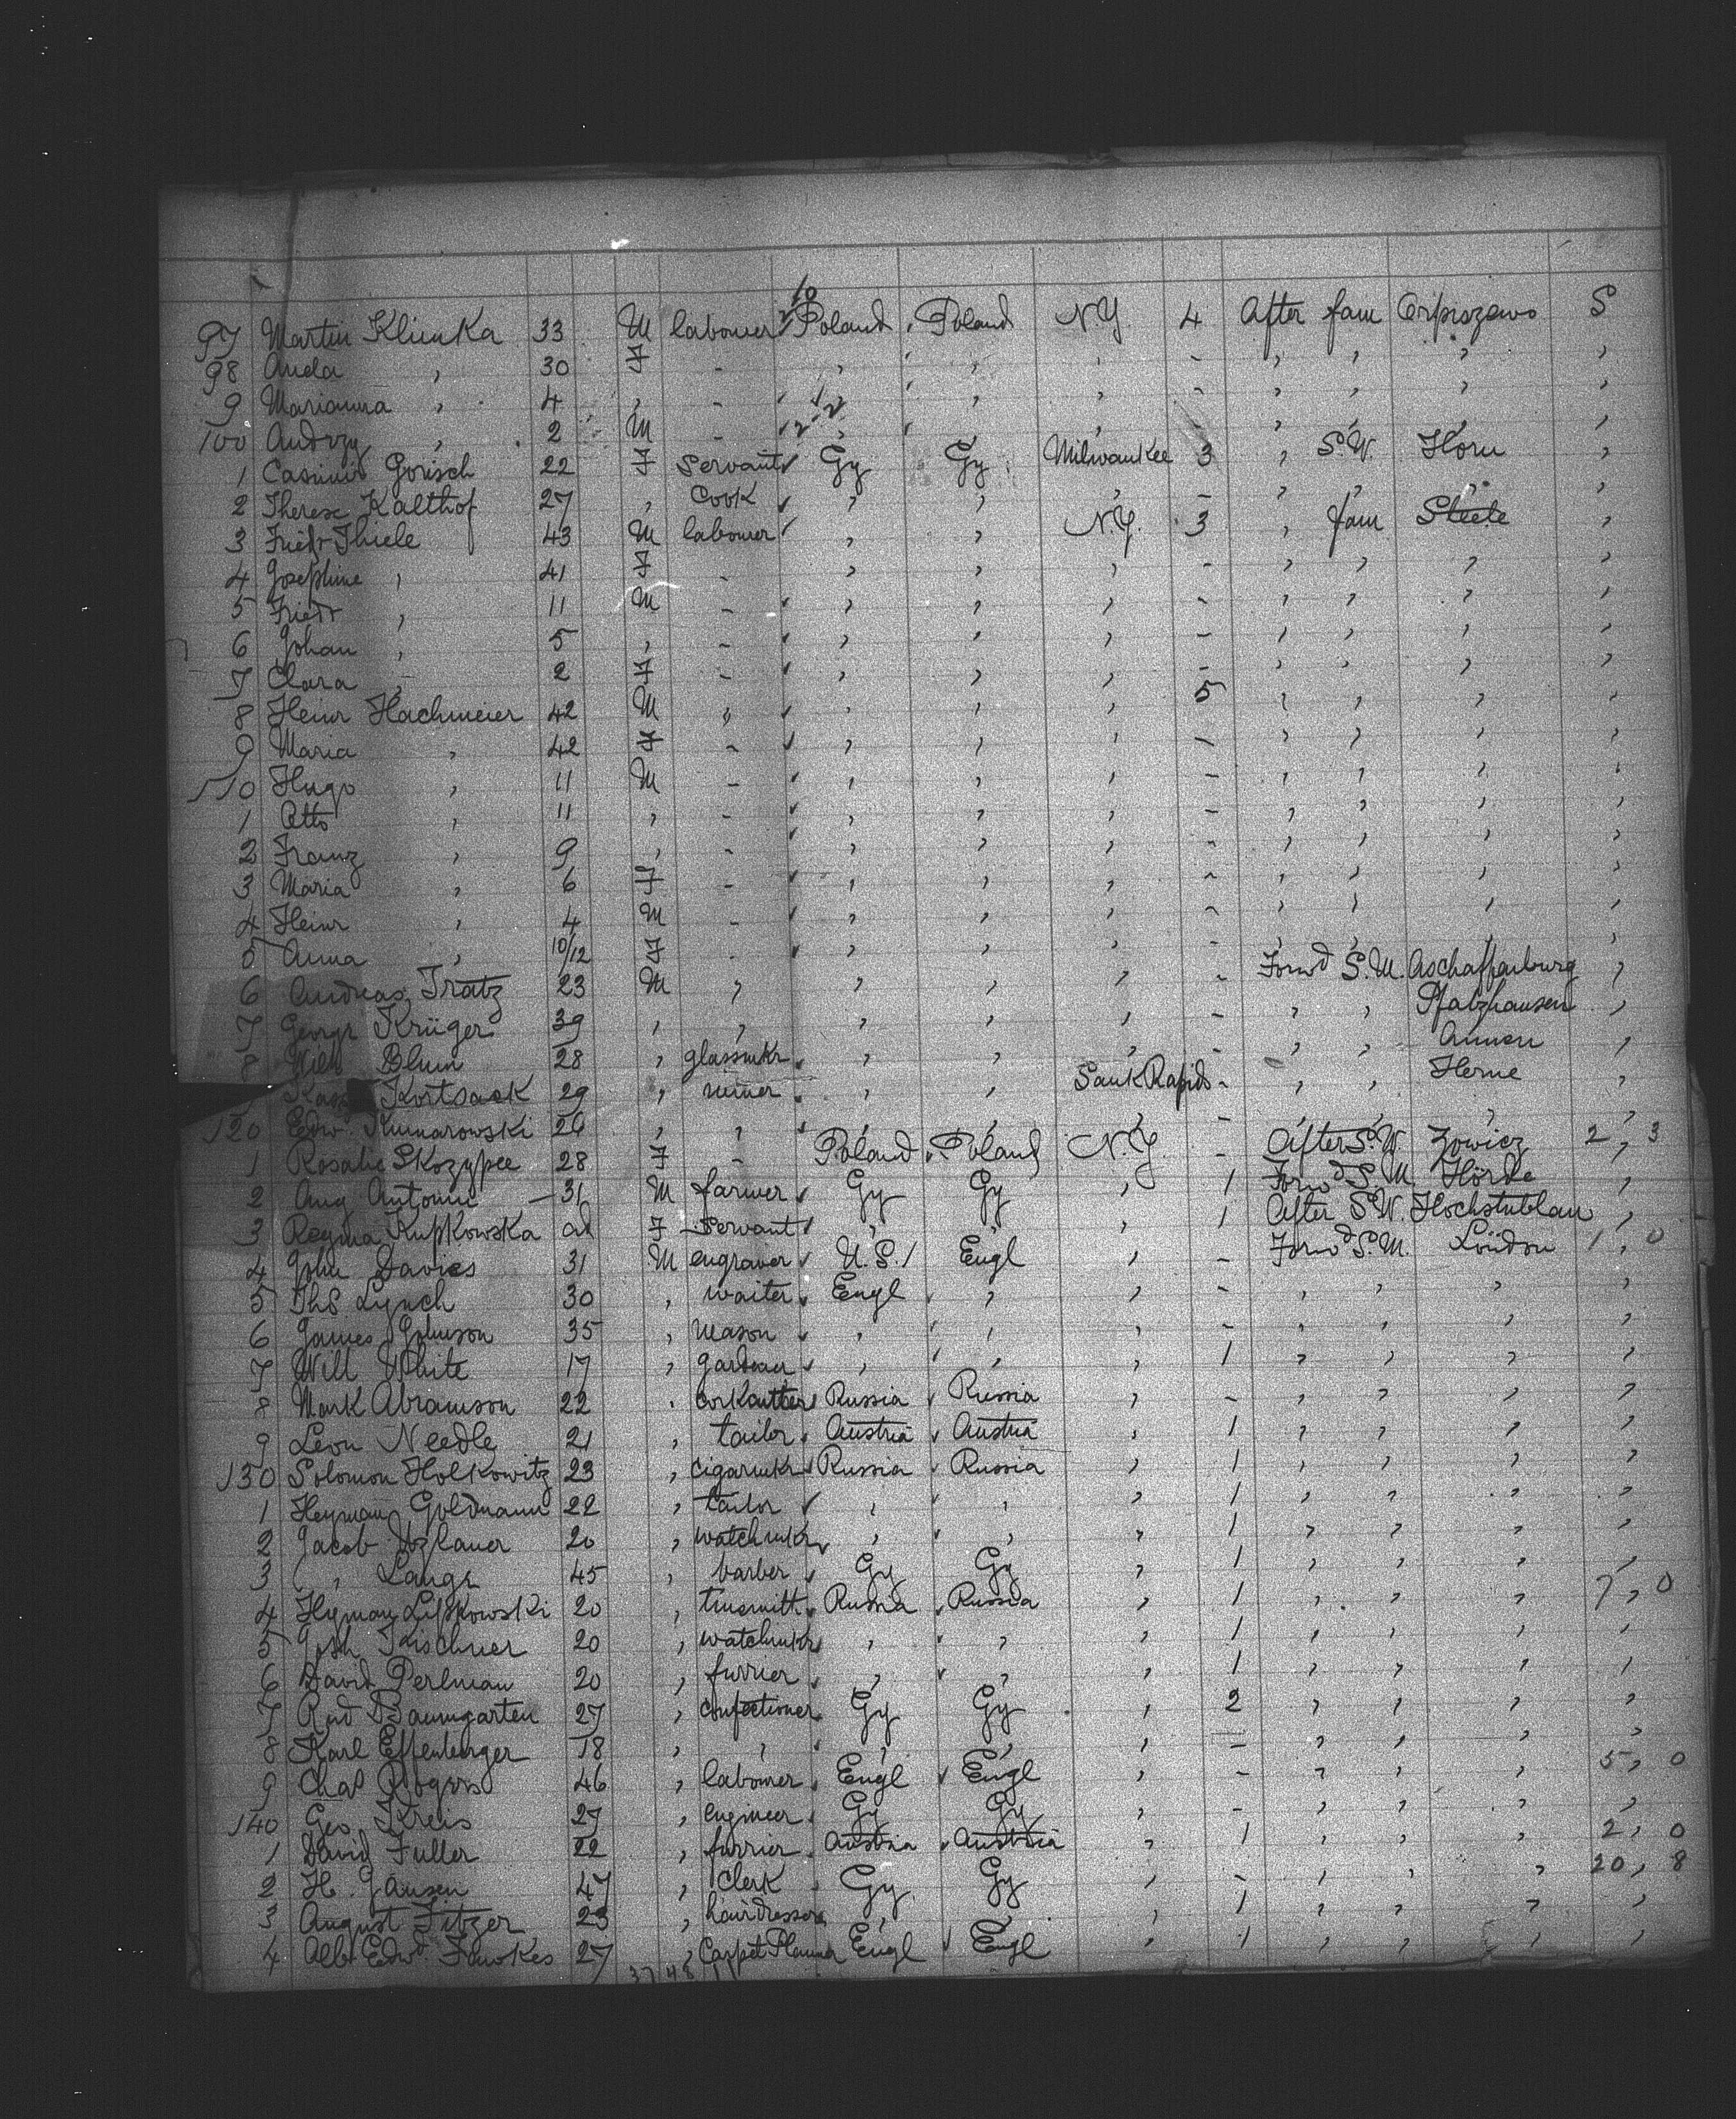 10
97 Martin Klimka 33 M labourer Poland Poland N.Y. 4 After fam Orpiszewo S
98 Anda , 30 F - , , , - , , , ,
9 Marianna , 4 , - , , , - , , , ,
100 Andrzy , 2 M - , , , - , , , ,
1 Casimir Gorisch 22 F Servant Gy Gy Milwaukee 3 , S.W. Horn ,
2 Therese Kalthof 27 , Cook , , , - , , , ,
3 Friedr Thiele 43 M labourer , , N.Y. 3 , fam Steele ,
4 Josephine , 41 F - , , , - , , , ,
5 Friedr , 11 M - , , , - , , , ,
6 Johan , 5 , - , , , - , , , ,
7 Clara , 2 F - , , , - , , , ,
8 Heinr Hachmeier 42 M , , , , 5 , , , ,
9 Maria , 42 F - , , , - , , , ,
110 Hugo , 11 M - , , , - , , , ,
1 Otto , 11 , - , , , - , , , ,
2 Franz , 9 , - , , , - , , , ,
3 Maria , 6 F - , , , - , , , ,
4 Heinr , 4 M - , , , - , , , ,
5 Anna , 10/12 F - , , , - , , , ,
6 Andreas Tratz 23 M , , , , - Forwd S.M. Aschaffenburg ,
7 George Krüger 39 , , , , , - , , Pfalzhausen ,
8 Wilh Blum 28 , glassmkr , , , - , , Annen ,
Kortsack 29 , miner , , Sauk Rapids - , , Herne ,
120 Edw. 26 , , , , , - , , , ,
1 Rosalie Skozypee 28 F - Poland Poland N.Y. - After S.W. Zowicz 2, 3
2 Aug Antonin 31 M farmer Gy Gy , 1 Forwd S.M. Hörde ,
3 Regina Kupkowska ad F Servant , , , 1 After S.W. Hochstüblau ,
4 John Davies 31 M engraver U.S. Engl , - Forwd S.M. London 1, 0
5 Ths Lynch 30 , waiter Engl , , - , , , ,
6 James Johnson 35 , mason , , , - , , , ,
7 Will White 17 , gardener , , , 1 , , , ,
8 Mark Abramson 22 , corkcutter Russia Russia , - , , , ,
9 Leon Needle 21 , tailor Austria Austria , 1 , , , ,
130 Solomon Holkowitz 23 , cigarmkr Russia Russia , 1 , , , ,
1 Heyman Goldmann 22 , tailor , , , 1 , , , ,
2 Jacob 20 , watchmkr , , , 1 , , , ,
3 , Lange 45 , barber Gy Gy , 1 , , , ,
4 Hyman Lipkowski 20 , tinsmith Russia Russia , 1 , , , 7, 0
5 Josh Kischner 20 , watchmkr , , , 1 , , , ,
6 David Perlman 20 , furrier , , , 1 , , , ,
7 Rud Baumgarten 27 , confectioner Gy Gy , 2 , , , ,
8 Karl Effenberger 18 , , , , , - , , , ,
9 Chas Rogers 46 , labourer Engl Engl , - , , , 5, 0
140 Geo Kreis 27 , engineer Gy Gy , - , , , ,
1 David Fuller 22 , furrier Austria Austria , 1 , , , 2, 0
2 H. Jansen 47 , Clerk Gy Gy , - , , , 20, 8
3 August Titzer 23 , hairdresser , , , 1 , , , ,
4 Alb Edwd Fawkes 27 , Carpet Planner Engl Engl , 1 , , , ,
37 48